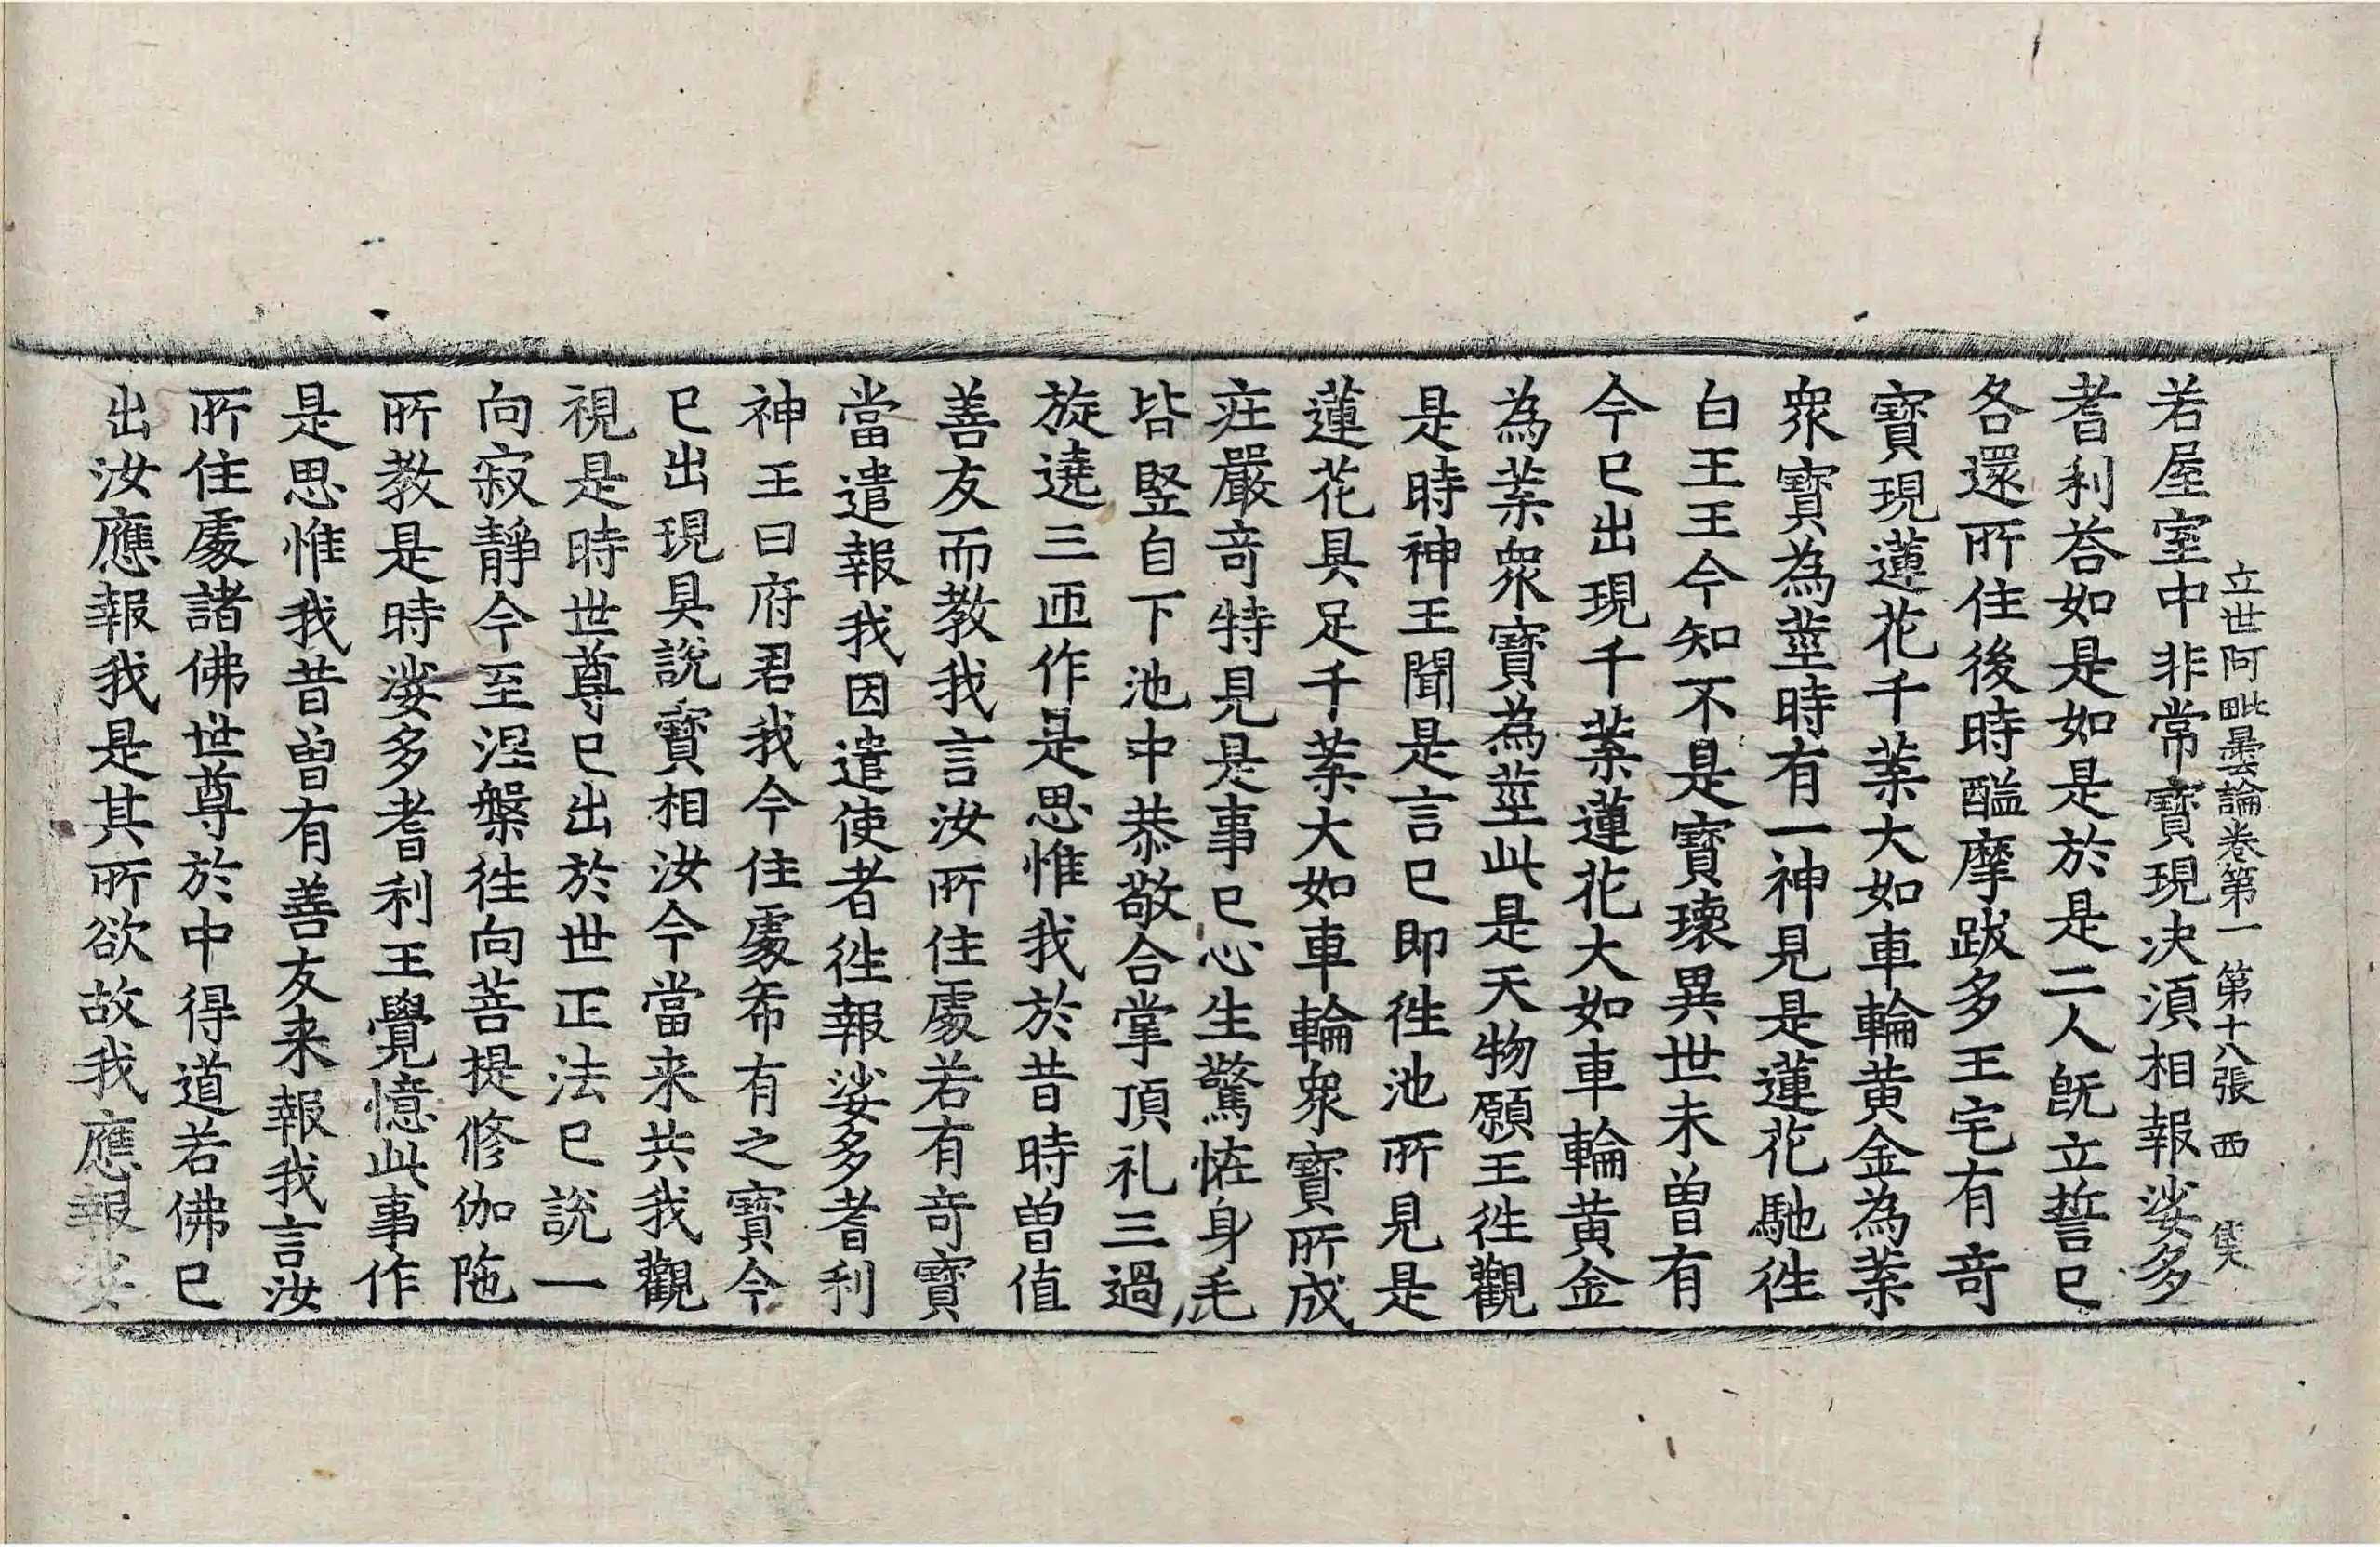 立世阿毗曇論卷第一 第十八張 西
若屋室中非常寶現決湏相報娑多
耆利荅如是如是於是二人旣立誓已
各還所住後時醯摩跋多王宅有竒
寶現蓮花千葉大如車輪黄金為葉
衆寶為莖時有一神見是蓮花馳徃
白王王今知不是寶瓌異世未曽有
今已出現千葉蓮花大如車輪黄金
為葉衆寶為莖此是天物願王徃觀
是時神王聞是言已即徃池所見是
蓮花具足千葉大如車輪衆寶所成
莊嚴竒特見是事已心生驚恠身毛
皆竪自下池中恭敬合掌頂礼三過
旋遶三迊作是思惟我於昔時曽值
善友而教我言汝所住處若有竒寶
當遣報我因遣使者徃報娑多耆利
神王曰府君我今住處希有之寶今
已出現具說寶相汝今當来共我觀
視是時世尊已出於世正法已說一
向寂靜令至涅槃徃向菩提修伽陁
所教是時娑多耆利王覺憶此事作
是思惟我昔曽有善友来報我言汝
所住處諸佛世尊於中得道若佛已
出汝應報我是其所欲故我應報